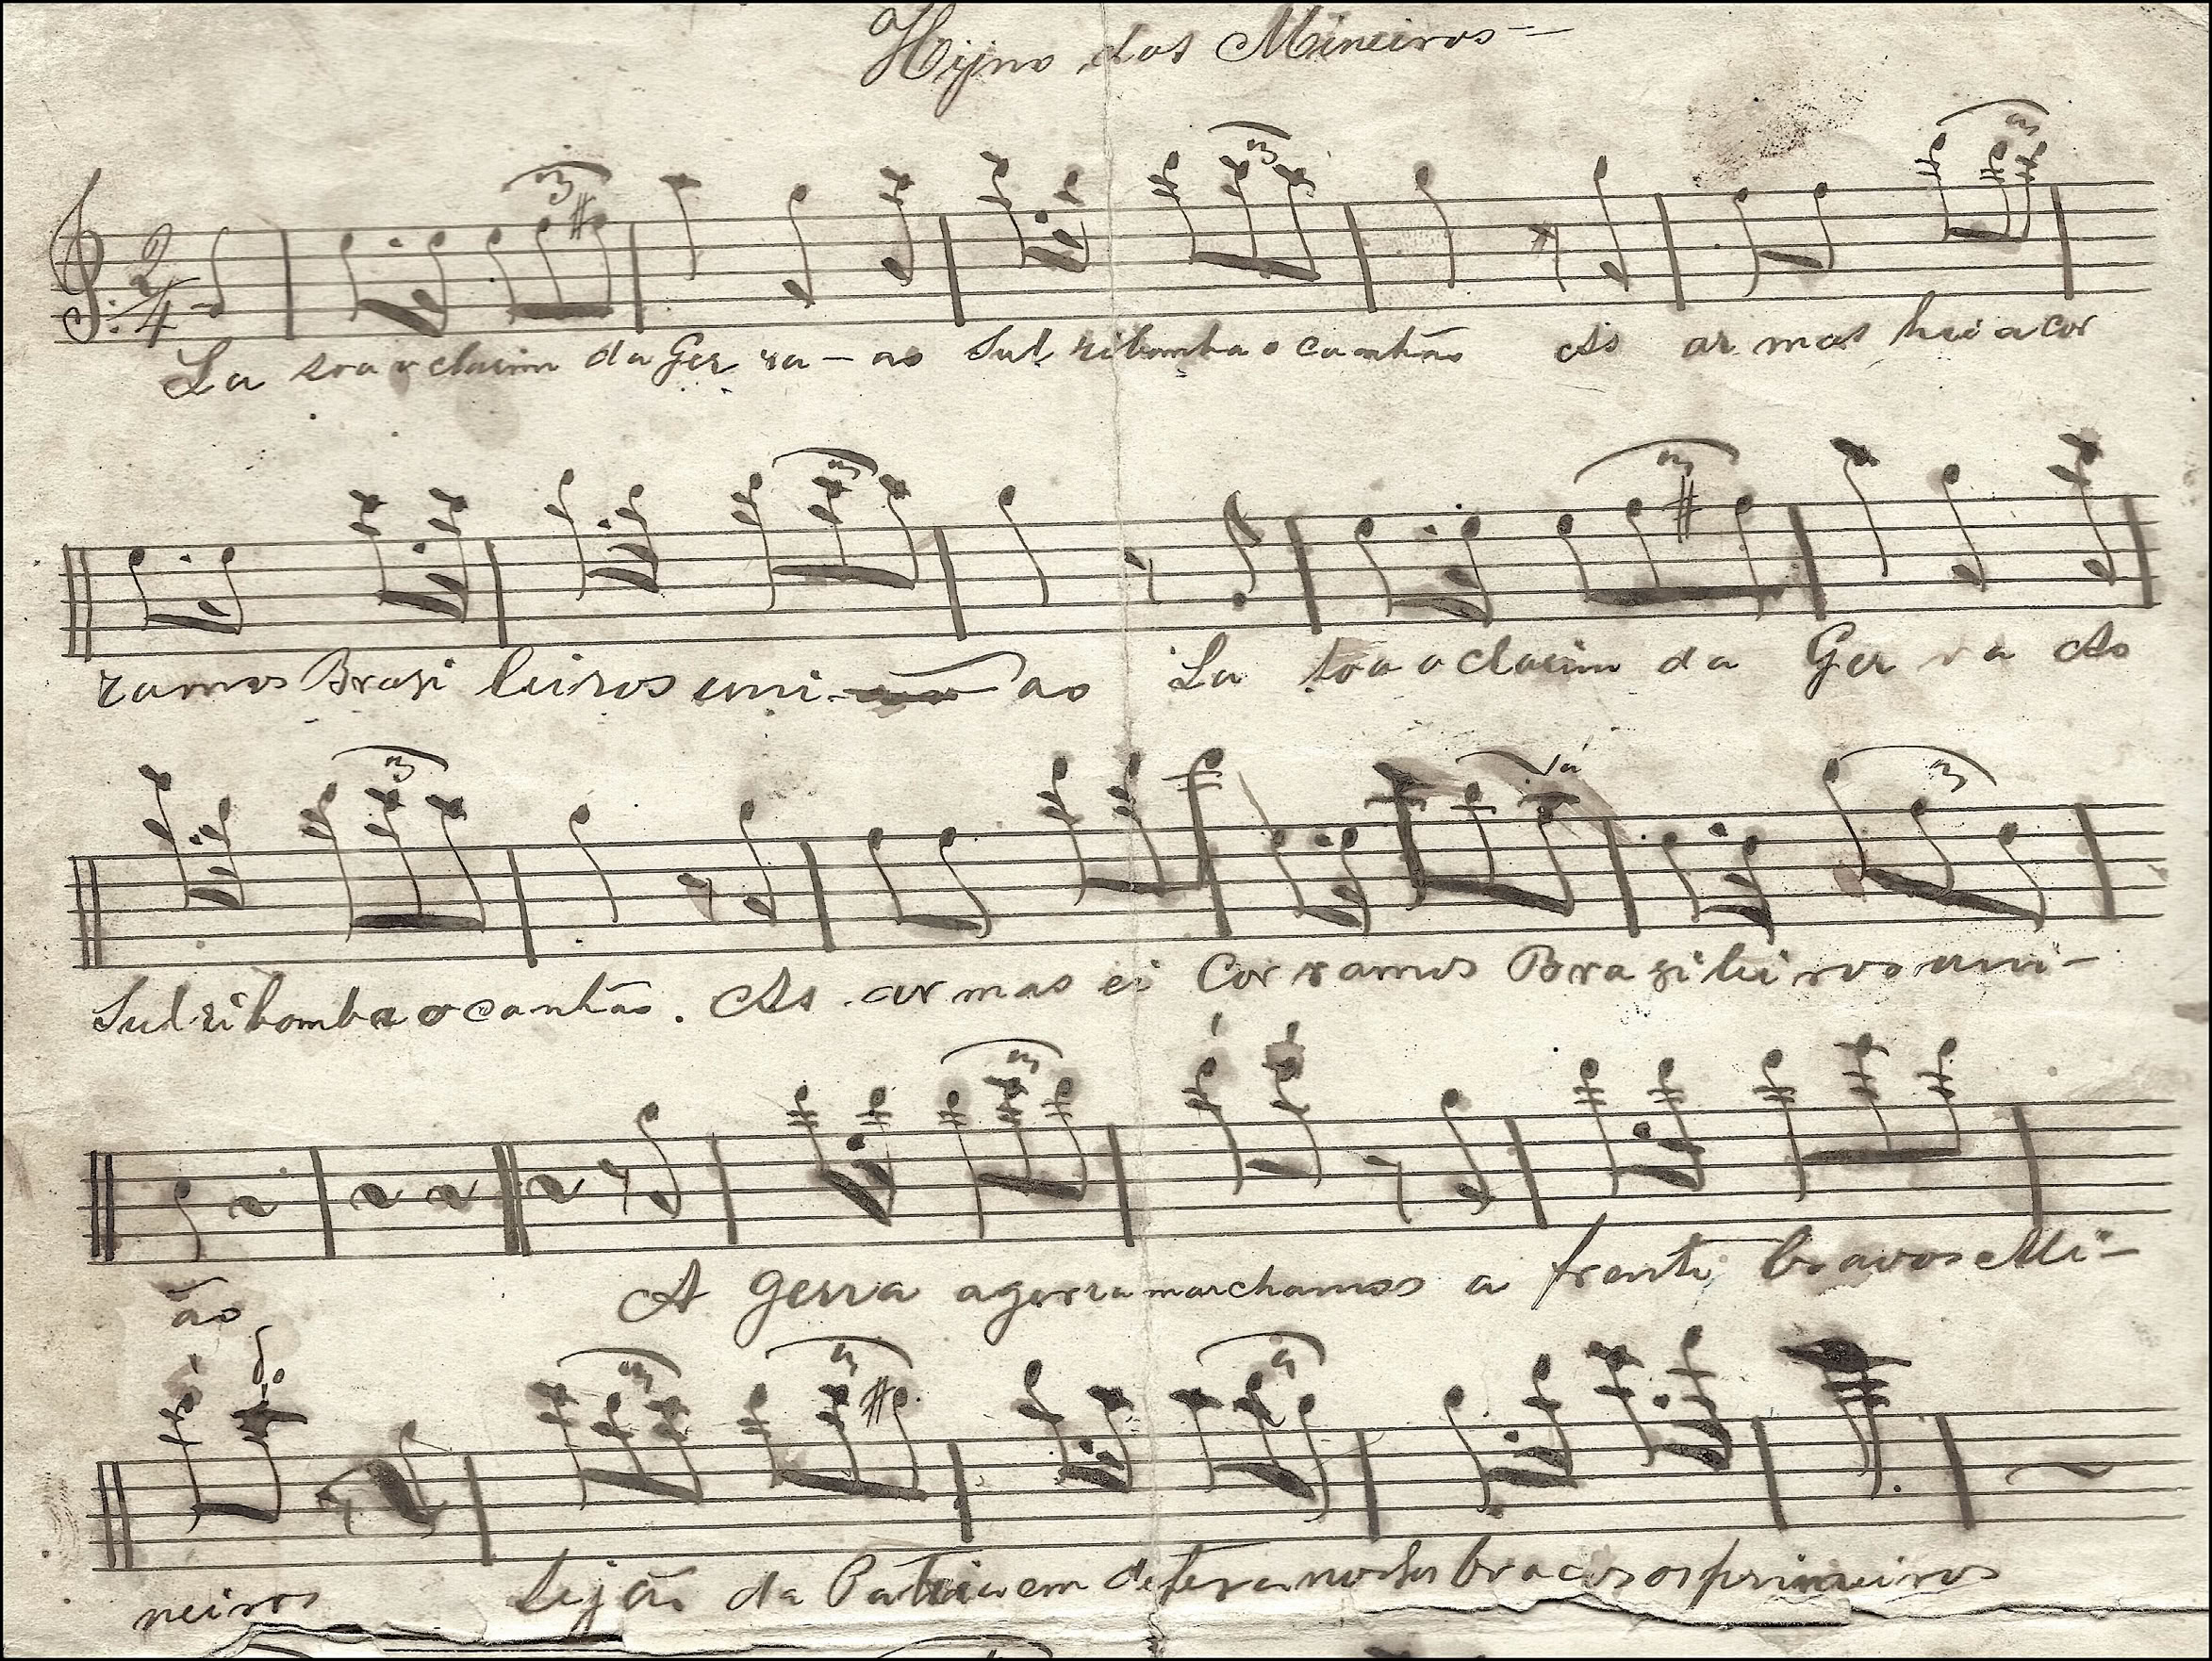 Hijno dos Mineiros
La soa o clarim da Ger ra - ao Sul ribomba o canhão As ar mas hei a cor
ramos Brazi leiros uni- ao La soa o clarim da Ger r a As
Sul ribomba o canhão. As ar mas ei Cor ramos Brazileiros uni-
ão A gerra agorra marchamos a frente bravos Mi-
neiros Sejão da Patria em defeza nossos braços os primeiros